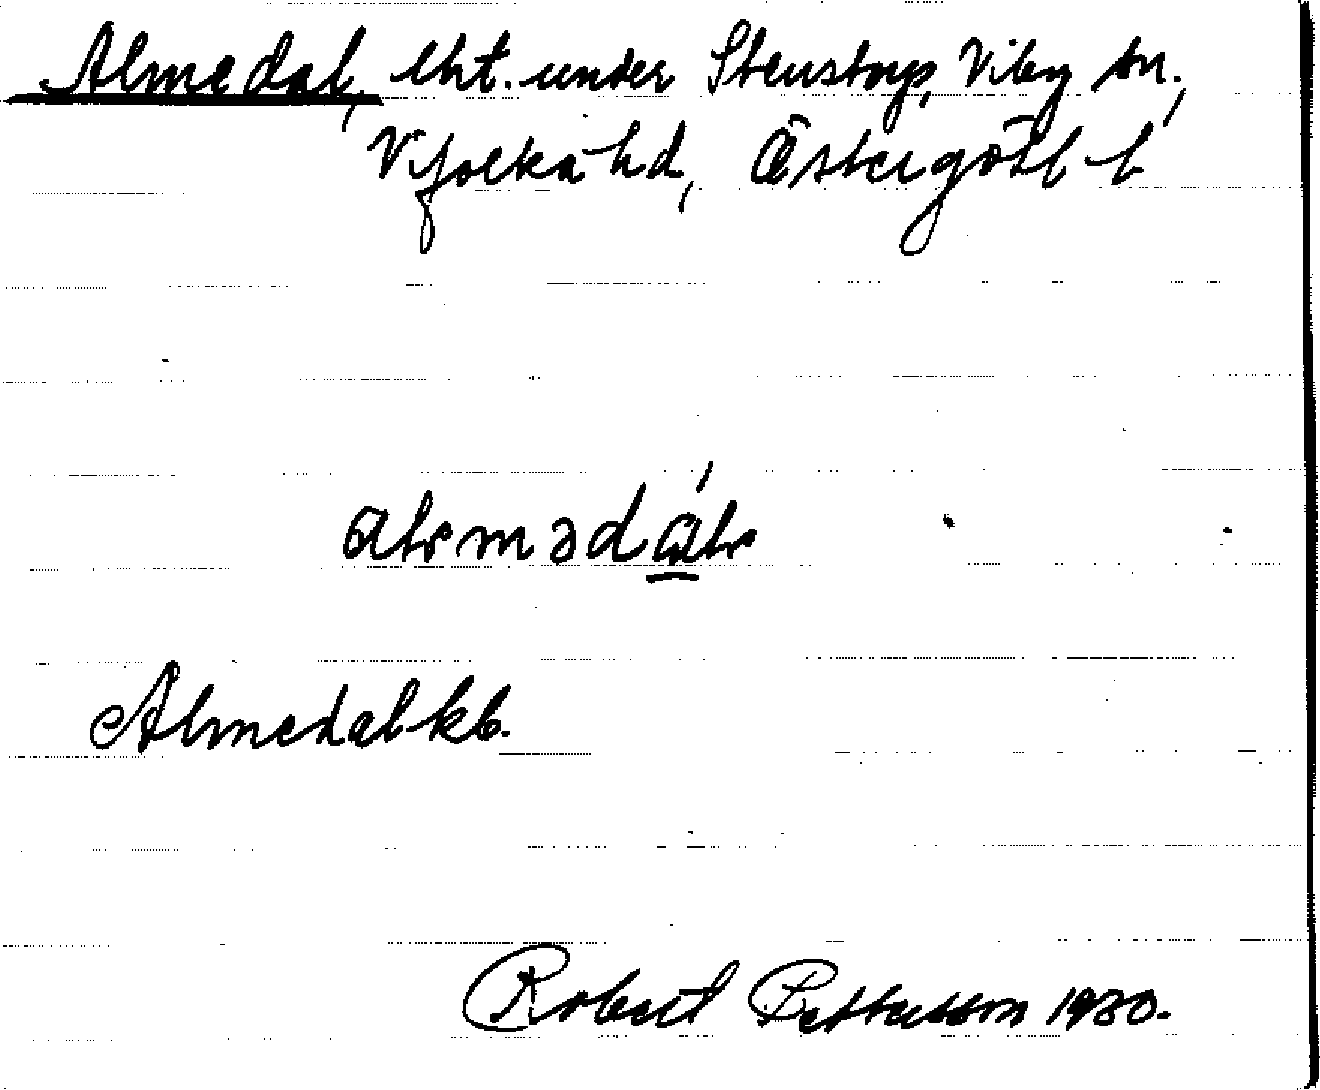 Almedal, lht. under Stenstorp, Viby sn.,
Vifolka hd, Östergötl. l.
almədál
Almedal kb.
Robert Pettersson 1930.